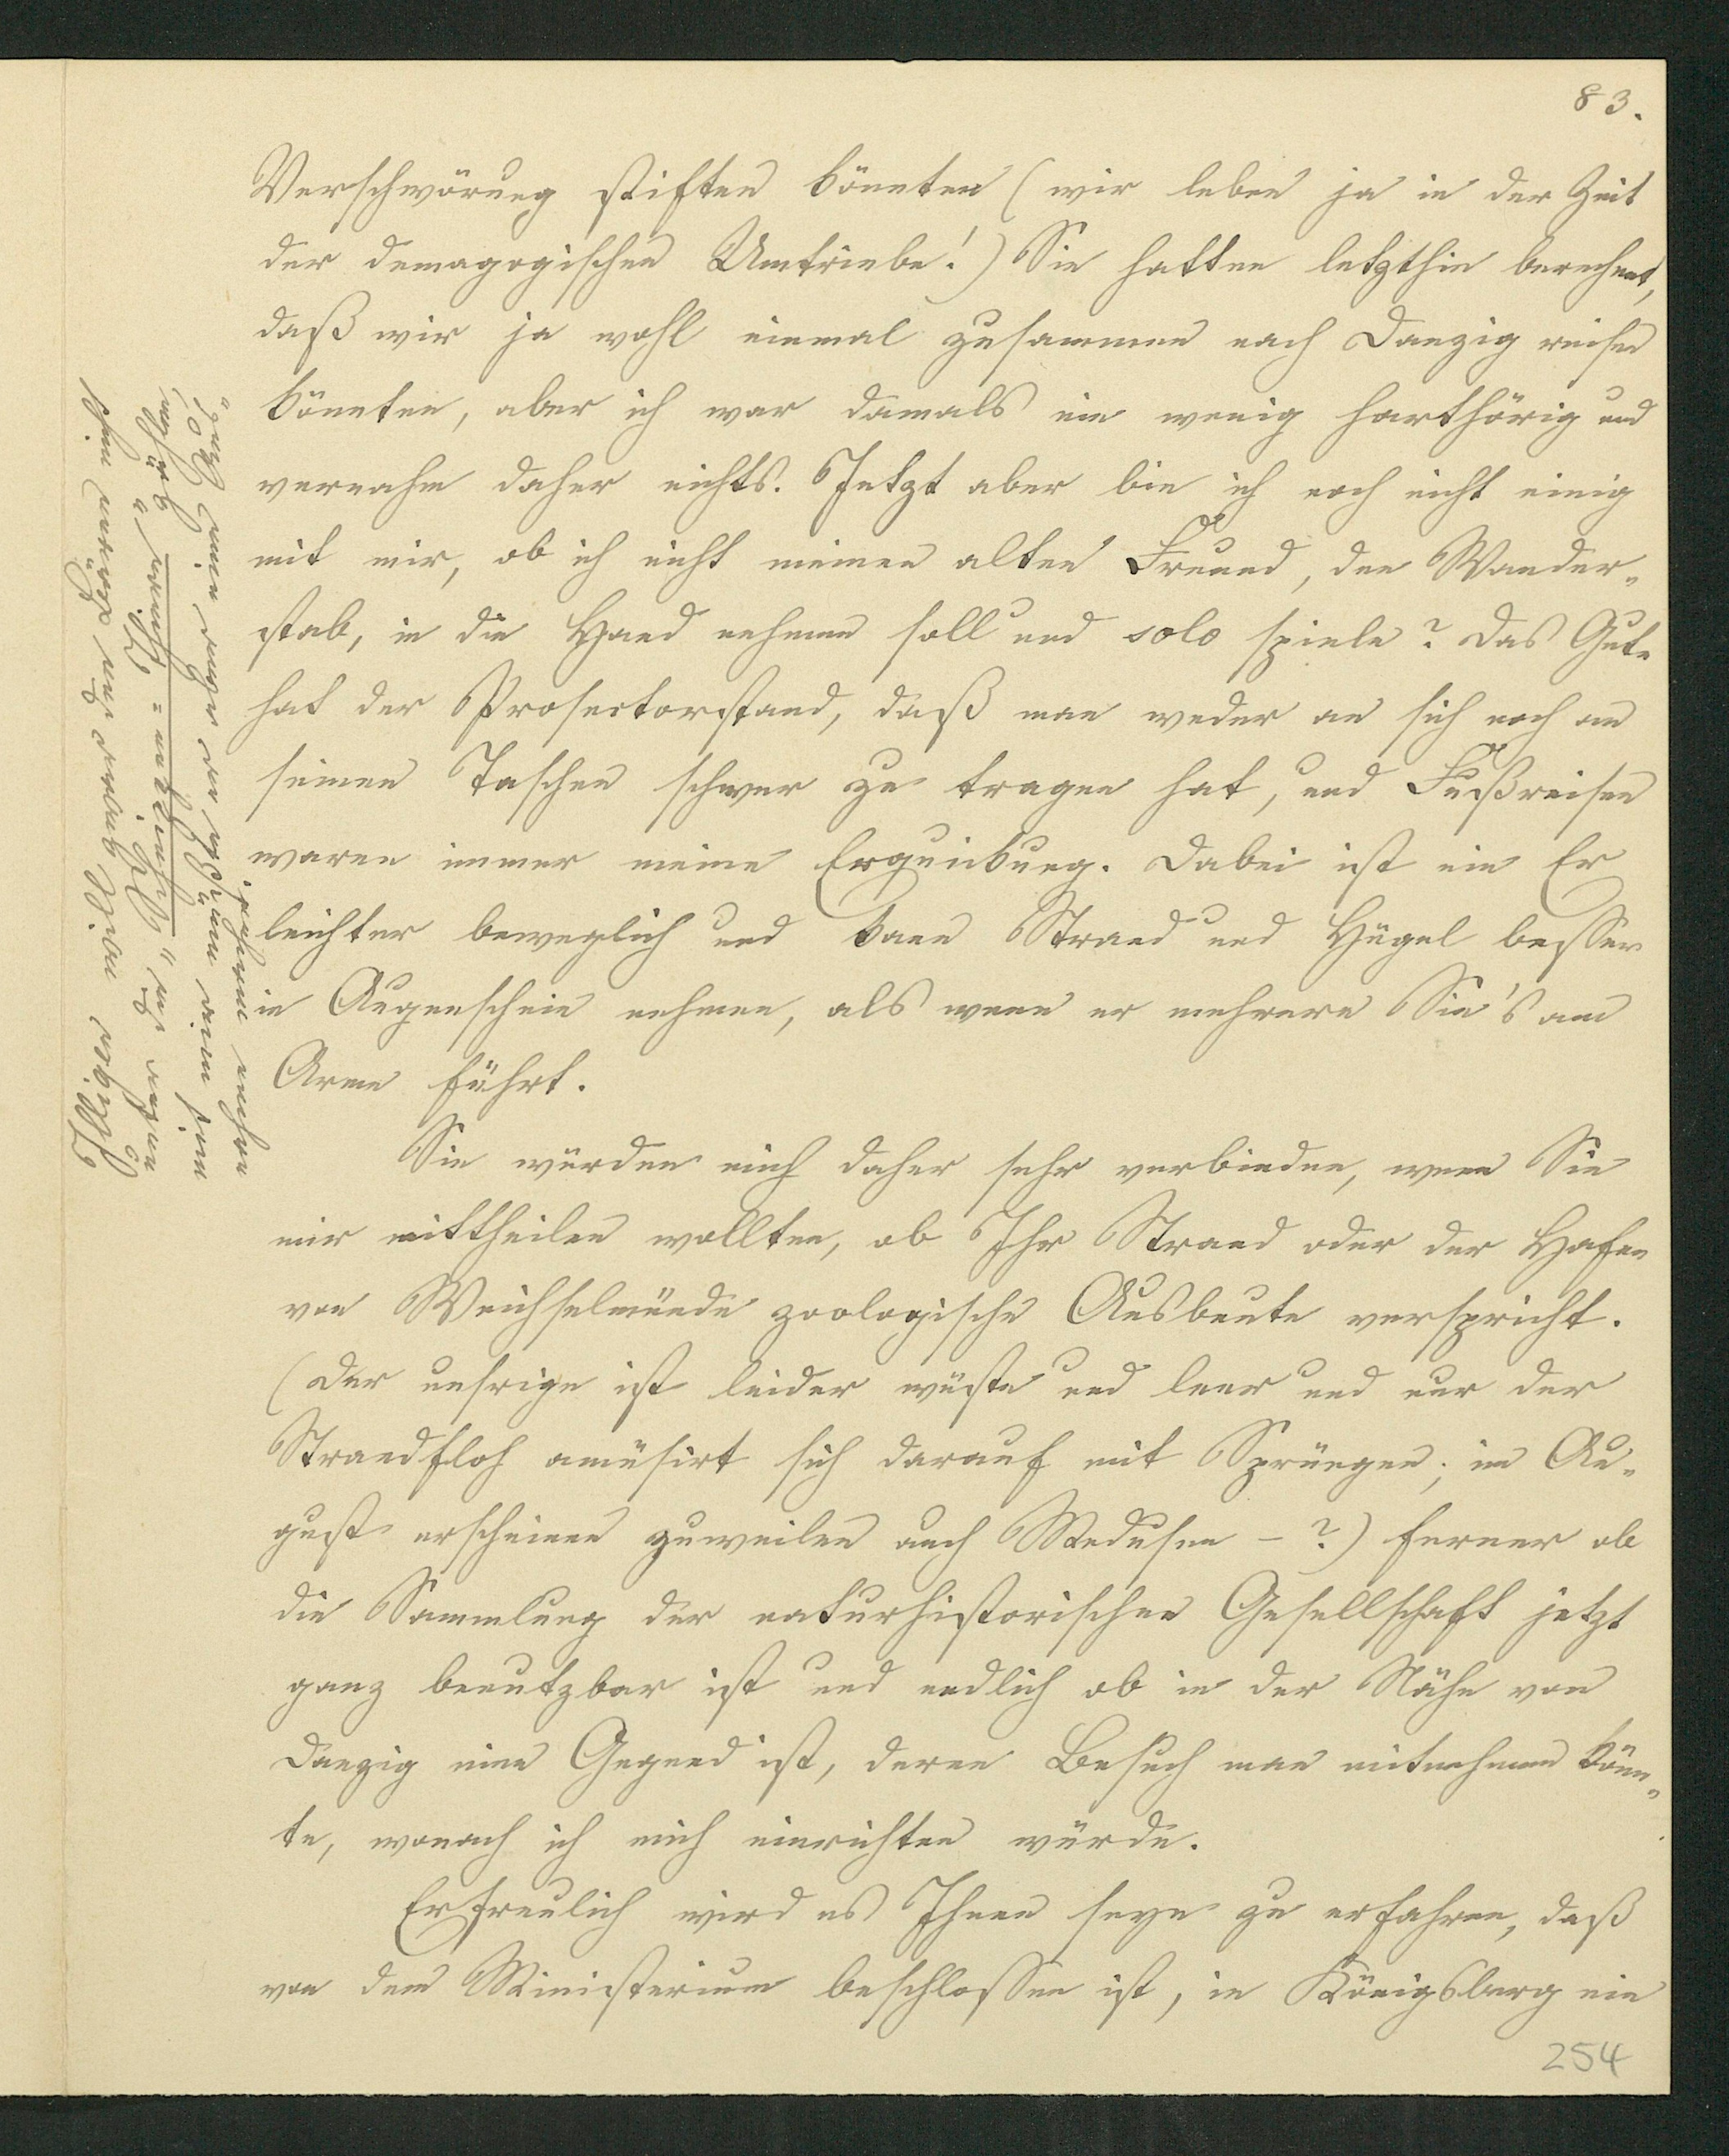 83.
Verschwörung stiften könnten (wir leben ja in der Zeit
der demagogischen Umtriebe!) Sie hatten letzthin berechnet,
daß wir ja wohl einmal zusammen nach Danzig reisen
könnten, aber ich war damals ein wenig harthörig und
vernahm daher nichts. Jetzt aber bin ich noch nicht einig
mit mir, ob ich nicht meinen alten Freund, den Wander-
stab, in die Hand nehmen soll und solo spiele? Das Gute
hat der Prosectorstand, daß man weder an sich noch an
seinen Taschen schwer zu tragen hat, und Fußreisen
waren immer meine Erquickung. Dabei ist ein Er
leichter beweglich und kann Strand und Hügel besser
in Augenschein nehmen, als wenn er mehrere Sie's am
Arme führt.
Sie würden mich daher sehr verbinden, wenn Sie
mir mittheilen wollten, ob Ihr Strand oder der Hafen
von Weichselmünde zoologische Ausbeute verspricht.
(Der unsrige ist leider wüste und leer und nur der
Strandfloh amüsirt sich darauf mit Sprüngen; im Au-
gust erscheinen zuweilen auch Medusen - ?) ferner ob
die Sammlung der naturhistorischen Gesellschaft jetzt
ganz benutzbar ist und endlich ob in der Nähe von
Danzig eine Gegend ist, deren Besuch man mitnehmen könn-
te, wonach ich mich einrichten würde.
Erfreulich wird es Ihnen seyn zu erfahren, daß
von dem Ministerium beschlossen ist, in Königsberg ein
254